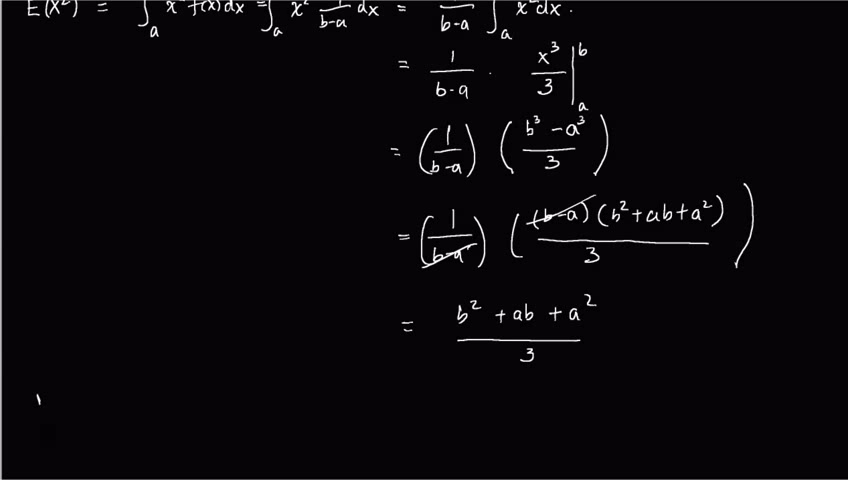 E(X²) = ∫ₐ x² f(x) dx = ∫ₐ x² 1/(b-a) dx = 1/(b-a) ∫ₐ x² dx.
= 1/(b-a) · x³/3 |ₐᵇ
= (1/(b-a)) ((b³ - a³)/3)
= (1/(b-a)) ((b-a)(b² + ab + a²)/3)
= (b² + ab + a²)/3